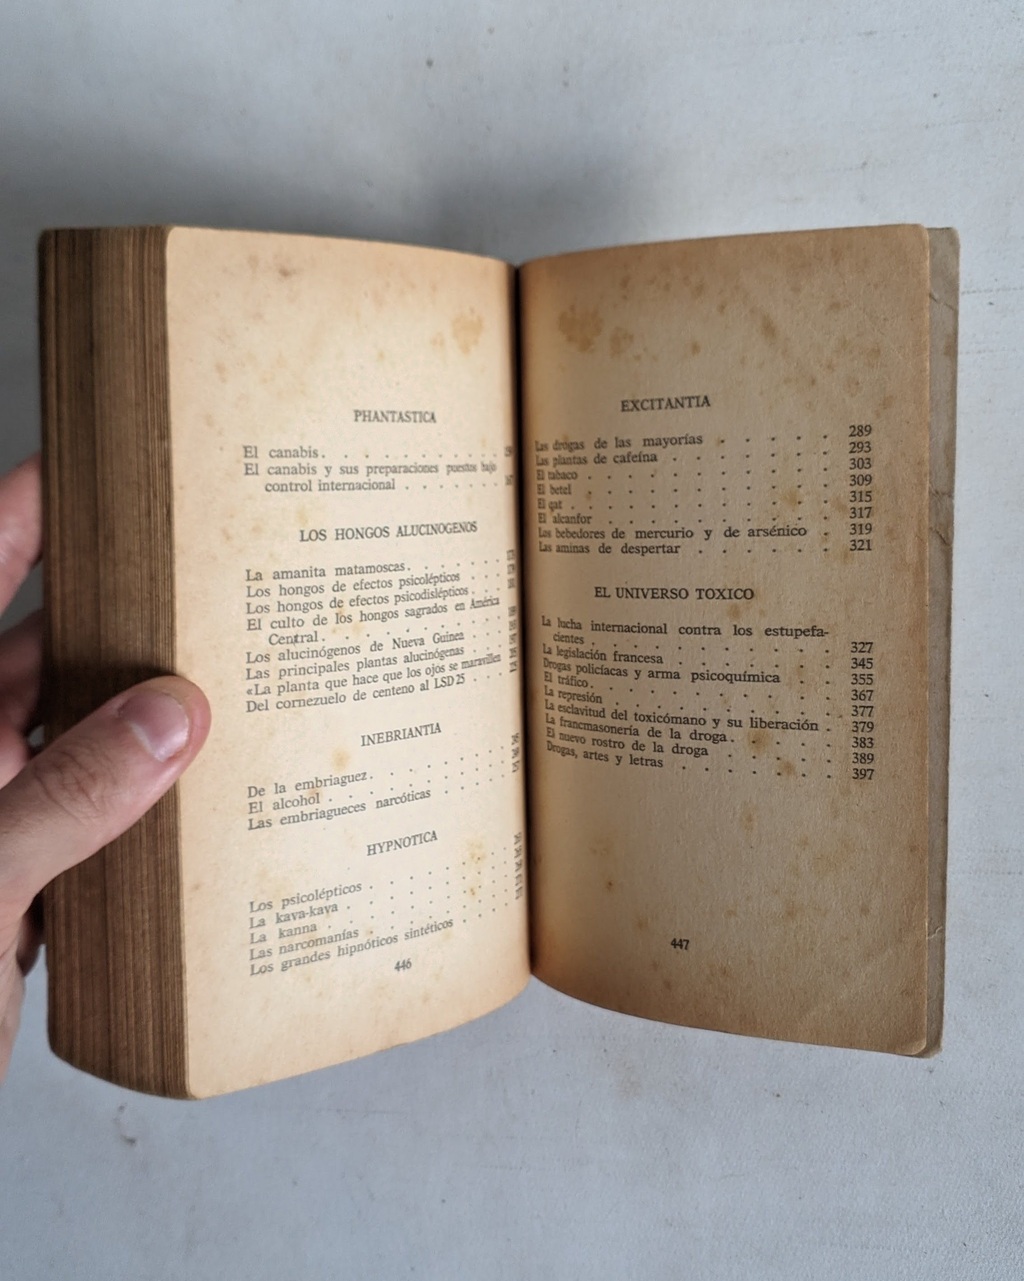 PHANTASTICA
El canabis . . . . . . . . .
El canabis y sus preparaciones puestos bajo
control internacional . . . . . .
LOS HONGOS ALUCINOGENOS
La amanita matamoscas . . . . .
Los hongos de efectos psicolépticos . . .
Los hongos de efectos psicodislépticos . . .
El culto de los hongos sagrados en América
Central . . . . . . . . .
Los alucinógenos de Nueva Guinea . . .
Las principales plantas alucinógenas . . .
«La planta que hace que los ojos se maravillen
Del cornezuelo de centeno al LSD 25 . . .
INEBRIANTIA
De la embriaguez . . . . . . .
El alcohol . . . . . . . . .
Las embriagueces narcóticas . . . .
HYPNOTICA
Los psicolépticos . . . . . . .
La kava-kava . . . . . . . .
La kanna . . . . . . . . .
Las narcomanías . . . . . . .
Los grandes hipnóticos sintéticos . . .
446
EXCITANTIA
Las drogas de las mayorías . . . . . 289
Las plantas de cafeína . . . . . . 293
El tabaco . . . . . . . . . 303
El betel . . . . . . . . . 309
El qat . . . . . . . . . . 315
El alcanfor . . . . . . . . . 317
Los bebedores de mercurio y de arsénico . 319
Las aminas de despertar . . . . . 321
EL UNIVERSO TOXICO
La lucha internacional contra los estupefa-
cientes . . . . . . . . . 327
La legislación francesa . . . . . . 345
Drogas policíacas y arma psicoquímica . . 355
El tráfico . . . . . . . . . 367
La represión . . . . . . . . 377
La esclavitud del toxicómano y su liberación . 379
La francmasonería de la droga . . . . 383
El nuevo rostro de la droga . . . . . 389
Drogas, artes y letras . . . . . . 397
447